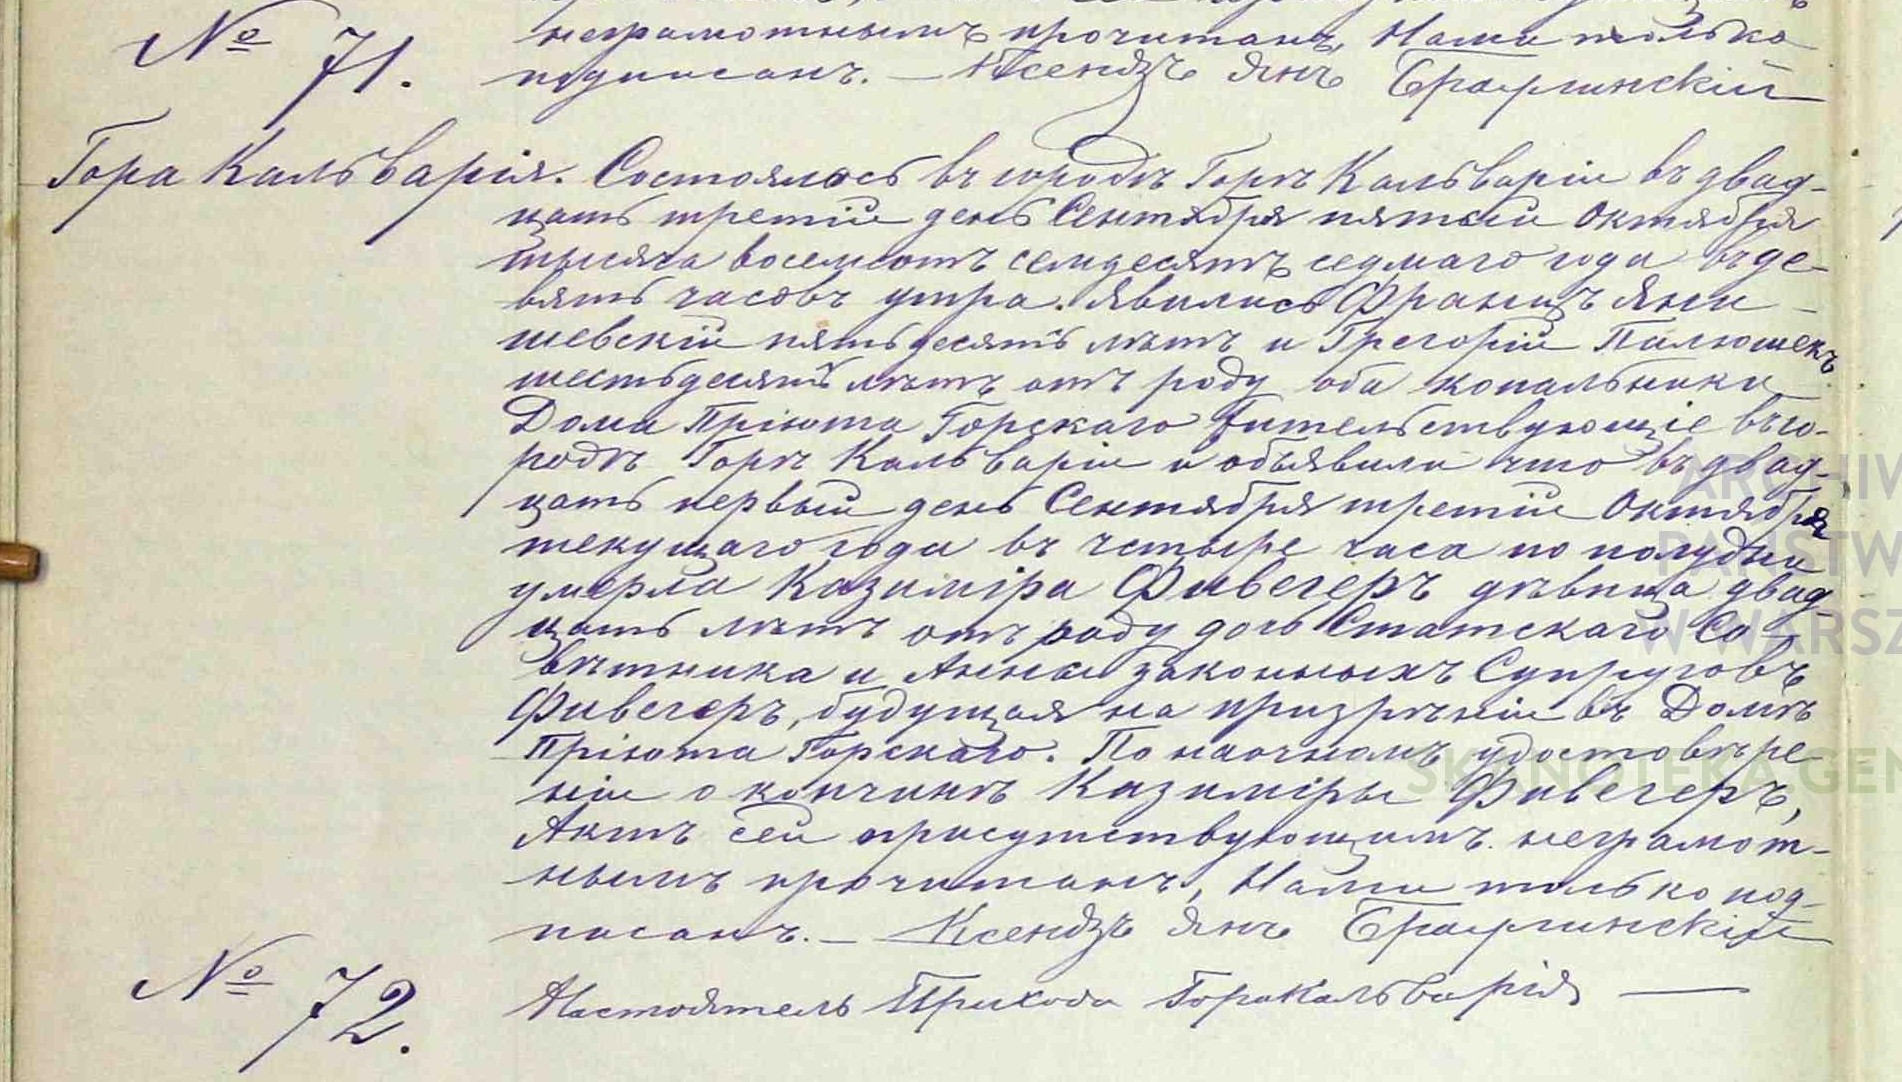 неграмотнымъ прочитанъ, Нами только
№ 71.
подписанъ. — Ксендзъ Янъ
Гора Кальварія. Состоялось въ городѣ Горѣ Кальваріи въ двад-
цать третій день Сентября пятый Октября
тысяча восемсотъ семдесятъ седмаго года въ де-
вять часовъ утра. Явились Францъ Яни-
шевскій пятьдесятъ лѣтъ и Грегорій Палюшекъ
шестьдесятъ лѣтъ отъ роду оба копальники
Дома Пріюта Горскаго жительствующіе въ го-
родѣ Горѣ Кальваріи и объявили что въ двад-
цать первый день Сентября третій Октября
текущаго года въ четыре часа по полудни
умерла Казиміра Фивегеръ дѣвица двад-
цать лѣтъ отъ роду дочь Статскаго Со-
вѣтника и Анны законныхъ Супруговъ
Фивегеръ, будущая на призрѣніи въ Домѣ
Пріюта Горскаго. По наочномъ удостовѣре
ніи о кончинѣ Казиміры Фивегеръ,
Актъ сей присутствующимъ неграмот-
нымъ прочитанъ, Нами только под-
писанъ. — Ксендзъ Янъ
№ 72.
Настоятель Прихода Горакальварія —
ARCHIW
PAŃSTW
W WARSZ
SKANOTEKA.GEN